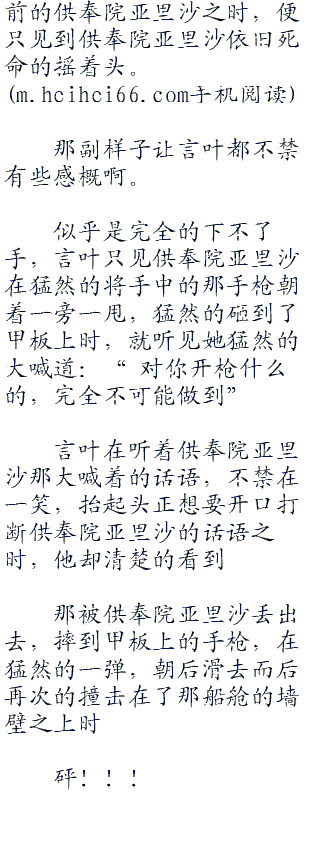 前的供奉院亚里沙之时，便
只见到供奉院亚里沙依旧死
命的摇着头。
(m.hcihci66.com手机阅读)
那副样子让言叶都不禁
有些感概啊。
似乎是完全的下不了
手，言叶只见供奉院亚里沙
在猛然的将手中的那手枪朝
着一旁一甩，猛然的砸到了
甲板上时，就听见她猛然的
大喊道：“ 对你开枪什么
的，完全不可能做到”
言叶在听着供奉院亚里
沙那大喊着的话语，不禁在
一笑，抬起头正想要开口打
断供奉院亚里沙的话语之
时，他却清楚的看到
那被供奉院亚里沙丢出
去，摔到甲板上的手枪，在
猛然的一弹，朝后滑去而后
再次的撞击在了那船舱的墙
壁之上时
砰！！！